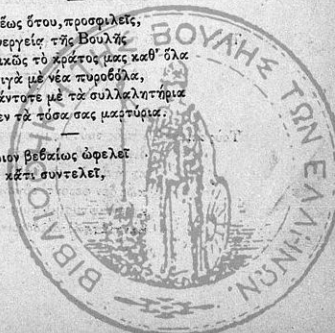 έως ότου, προσφιλεῖς,
νεργείᾳ τῆς Βουλῆς
ικῶς τὸ κράτος μας καθ' ὅλα
ιγὰ μὲ νέα πυροβόλα,
άντοτε μὲ τὰ συλλαλητήρια
εν τὰ τόσα σας μαρτύρια.
ριον βεβαίως ὠφελεῖ
κάτι συντελεῖ,
ΒΙΒΛΙΟΘΗΚΗ ΤΗΣ ΒΟΥΛΗΣ ΤΩΝ ΕΛΛΗΝΩΝ